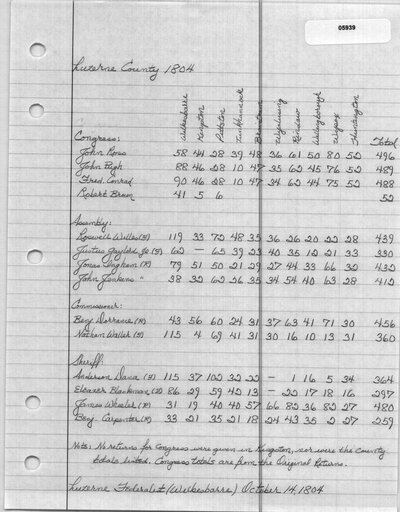 05939
Luzerne County 1804
Wilkesbarre Kingston Putnam Tunkhannock Braintrim Wyalusing Rindaw Wallsborough Wysox Huntington
Congress: Total
John Rose 58 44 28 39 48 36 61 50 80 52 496
John Pugh 88 46 28 10 47 35 62 45 76 52 489
Fred. Conrad 90 46 28 10 47 34 62 44 75 52 488
Robert Brown 41 5 6 52
Assembly:
Roswell Welles (F) 119 33 72 48 35 36 26 20 22 28 439
Justus Gaylord Jr (F) 62 — 65 39 23 40 35 12 21 33 330
Jonas Ingham (R) 79 51 50 21 29 27 44 33 66 32 432
John Jenkins " 38 32 62 26 35 34 54 40 63 28 412
Commissioner:
Benj Dorrance (R) 43 56 60 24 31 37 63 41 71 30 456
Nathan Waller (F) 115 4 69 41 31 30 16 10 13 31 360
Sheriff
Anderson Dana (F) 115 37 102 32 22 — 1 16 5 34 364
Eleazer Blackman (F) 86 29 59 42 13 — 22 17 18 16 297
James Wheeler (R) 31 19 40 40 57 66 82 36 82 27 480
Benj. Carpenter (R) 33 21 35 21 18 24 43 35 2 27 259
Note: No returns for Congress were given in Kingston, nor were the county
totals listed. Congress totals are from the Original Returns.
Luzerne Federalist (Wilkesbarre) October 14, 1804